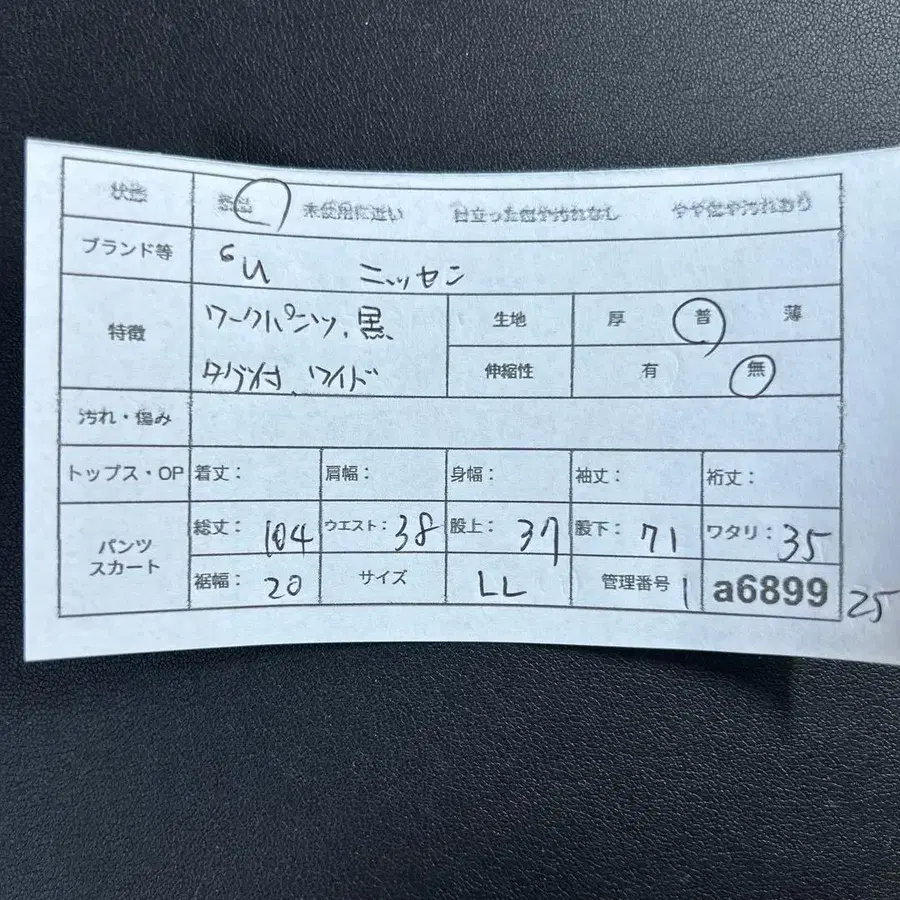 状態 新品 未使用に近い 目立った傷や汚れなし やや傷や汚れあり
ブランド等 GU ニッセン
特徴 ワークパンツ、黒 生地 厚 普 薄
タグ付、ワイド 伸縮性 有 無
汚れ・傷み
トップス・OP 着丈： 肩幅： 身幅： 袖丈： 裄丈：
パンツ スカート 総丈：104 ウエスト：38 股上：37 股下：71 ワタリ：35
裾幅：20 サイズ LL 管理番号 1 a6899 25